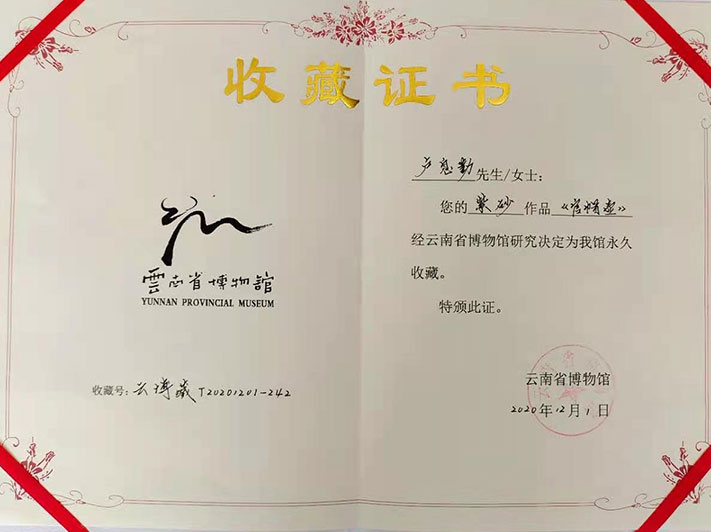 收藏证书
雲南省博物館
YUNNAN PROVINCIAL MUSEUM
收藏号：云博藏T20201201-242
先生/女士：
您的紫砂作品《壶》
经云南省博物馆研究决定为我馆永久
收藏。
特颁此证。
云南省博物馆
2020年12月1日